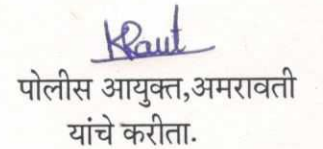 KRaut
पोलीस आयुक्त,अमरावती
यांचे करीता.